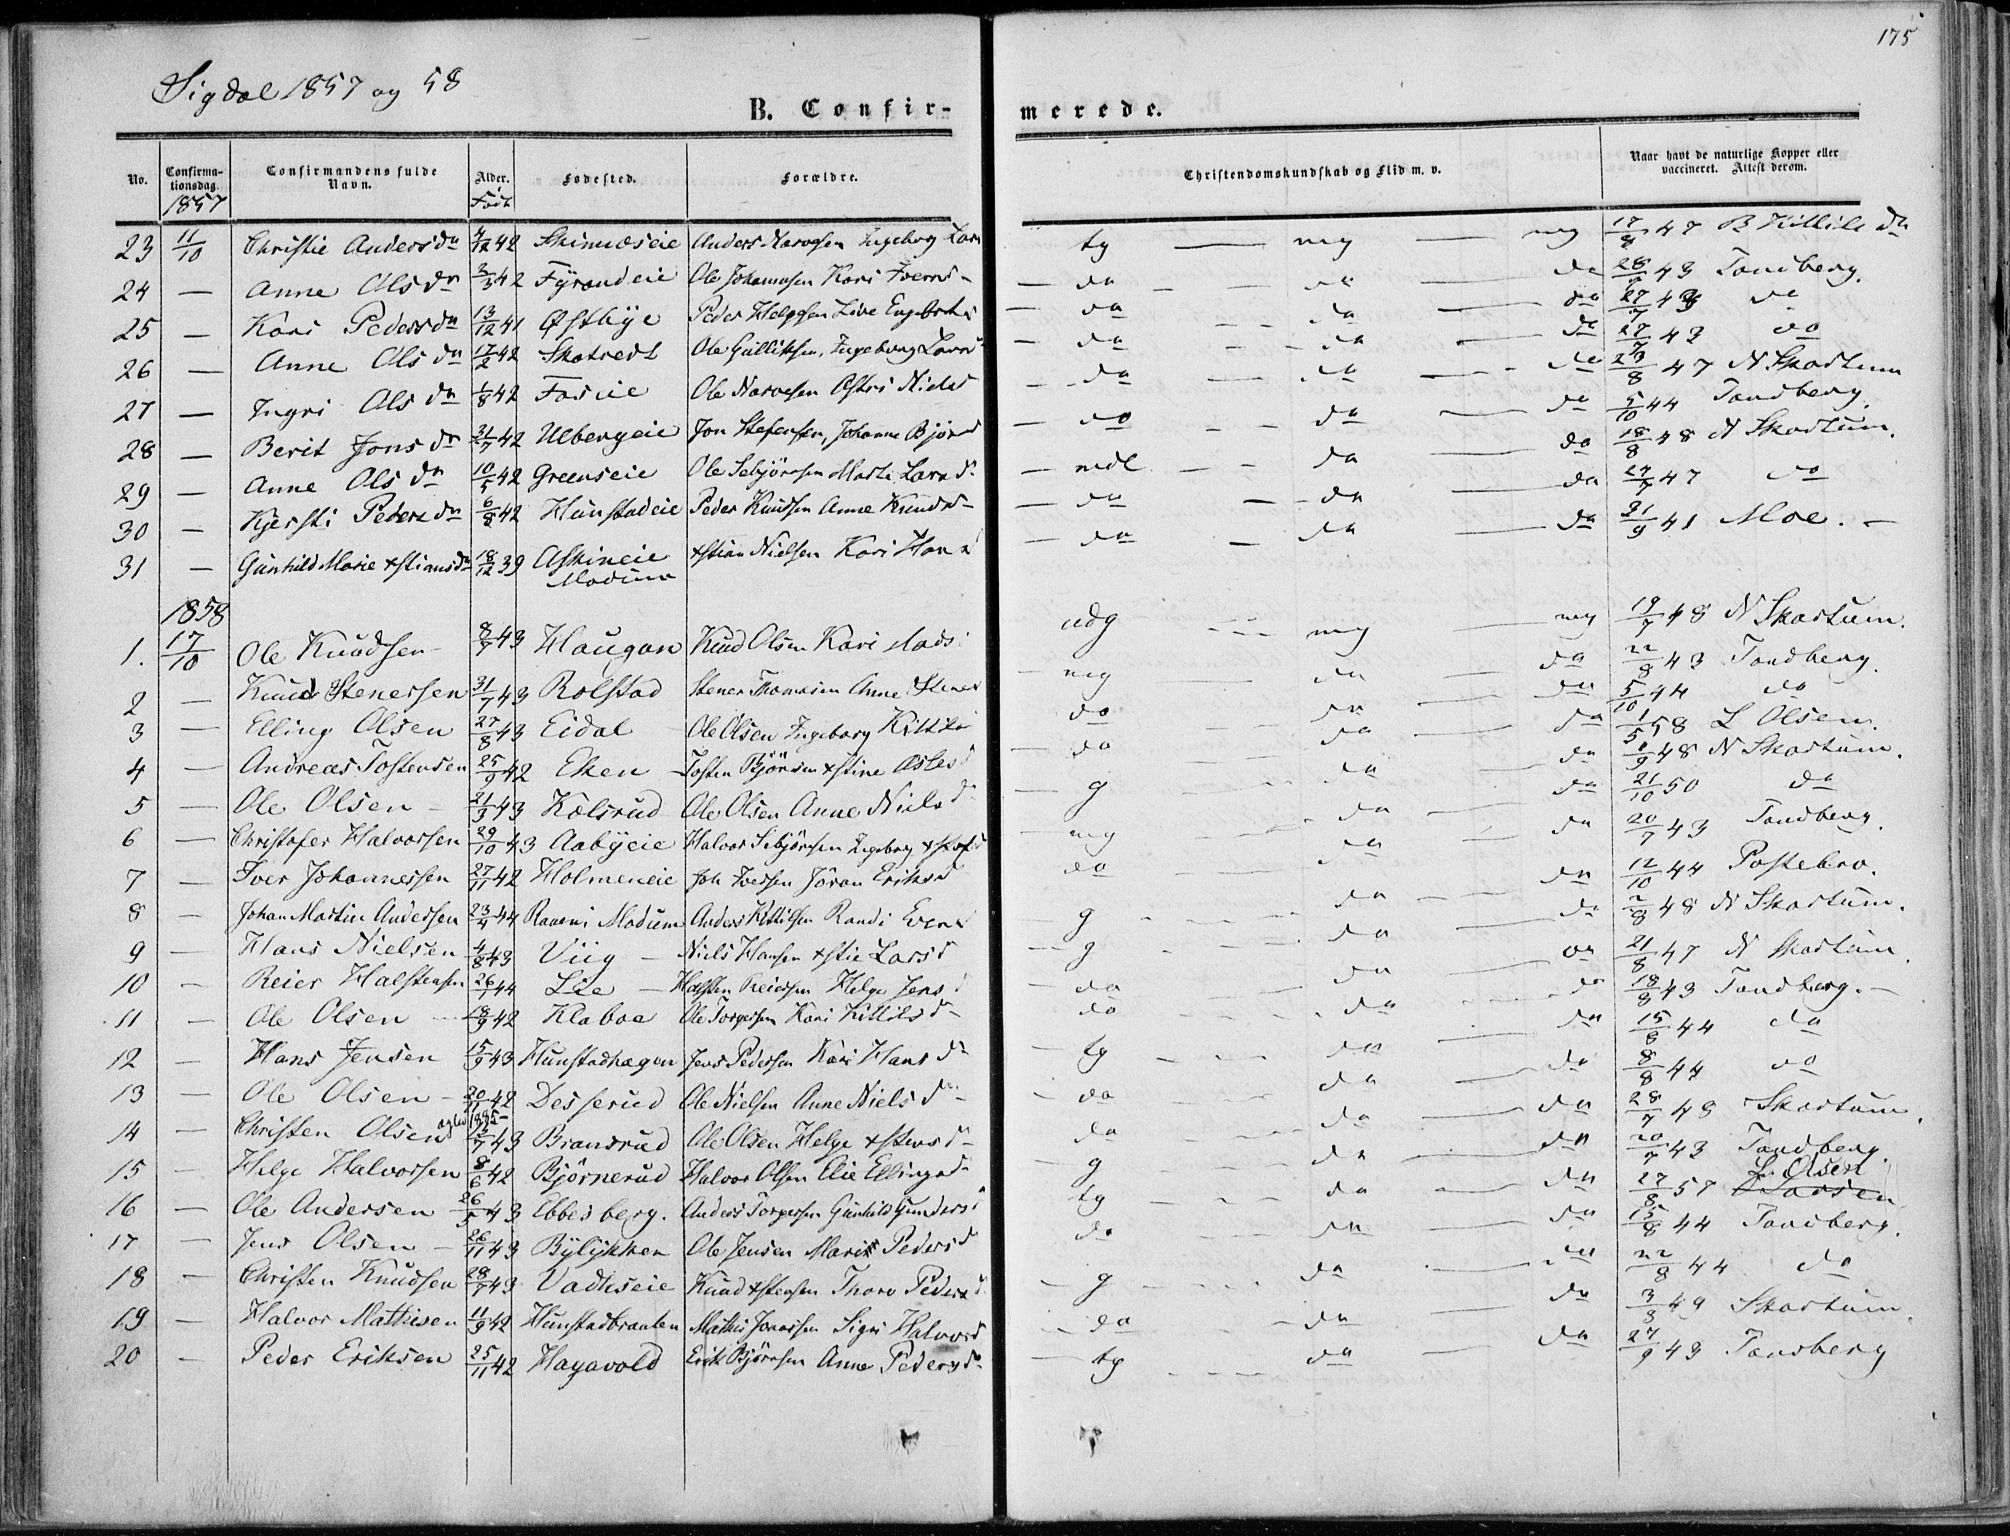 175
Sigdal 1857 og 58
B. Confirmerede.
No. Confirmationsdag. Confirmandens fulde Navn. Alder. Fødested. Forældre. Christendomskundskab og Flid m. v. Naar havt de naturlige Kopper eller vaccineret. Attest derom.
1857 Født
23 11/10 Christie Andersdn 4/12 42 Skinnæseie Anders Narvesen Ingeborg Lars tg — mg — mg 17/8 47 B Kittilsdn
24 — Anne Olsdn 3/3 42 Fyrandeie Ole Johannsen Kari Iversd — do — do — do 28/7 43 Tandberg.
25 — Kari Pedersdn 13/12 41 Østbye Peder Helgesen Live — do — do — do 27/7 43 do
26 — Anne Olsdn 17/2 42 Skatvedt Ole Gulliksen, Ingeborg Larsd — do — do — do 27/7 43 do
27 — Ingri Olsdn 1/8 42 Foseie Ole Narvesen Astri Nielsd — do — do — do 23/8 47 N Skartum
28 — Berit Jonsdn 21/7 42 Ulbergeie Jon Stefensen, Johanne — do — do — do 5/10 44 Tandberg.
29 — Anne Olsdn 10/5 42 Greenseie Ole Sebjörnsen Marte Larsd — mdl — do — do 18/8 48 N Skartum.
30 — Kjersti Pedersdn 6/8 42 Hunstadeie Peder Knudsen Anne Knudsd — do — do — do 27/7 47 do
31 — Gunhild Marie xstiansdn 18/12 39 Askineie Modum xstian Nielsen Kari Hansd — do — do — do 21/9 41 Moe. —
1858
1. 17/10 Ole Knudsen 8/7 43 Haugan Knud Olsen Kari Mads udg — mg — mg 19/7 48 N Skartum.
2 — Knud Stenersen 31/7 43 Rolstad Stener Thomasen Anne Stener mg — do — do 22/8 43 Tandberg.
3 — Elling Olsen 27/8 43 Eidal Ole Olsen Ingeborg Kittils — do — do — do 5/10 44 do
4 — Andreas Tostensen 25/9 42 Eken Tosten Björnsen xstine — do — do — do 1/5 58 L Olsen.
5 — Ole Olsen 21/3 43 Kolsrud Ole Olsen Anne Nielsd — g — do — do 48 N Skartum.
6 — Christofer Halvorsen 29/10 43 Aabyeie Halvor Sebjörnsen Ingeborg — mg — do — do 21/10 50 do
7 — Iver Johannessen 27/11 42 Holmeneie Joh Iversen Jöran Eriksd do — do — do 20/7 43 Tandberg.
8 — Johan Martin Andersen 23/4 44 Raaen i Modum Anders Kittilsen Randi g — do — do 12/10 44 Postebro.
9 — Hans Nielsen 4/8 43 Viig Niels Hansen xstie Larsd — g — do — do 2/8 48 N Skartum.
10 — Reier Halstensen 26/1 44 Lie Halsten Reiersen Helge Jens — do — do — do 21/8 47 N Skartum.
11 — Ole Olsen 18/9 42 Klaboe Ole Torgersen Kari Kittilsd do — do — do 18/8 43 Tandberg. —
12 — Hans Jensen 15/9 43 Hunstadhagen Jens Pedersen Kari Hansdn — tg — do — do 15/8 44 do
13 — Ole Olsen 20/11 42 Desserud Ole Nielsen Anne Nielsd — do — do — do 8/8 44 do
14 — Christen Olsen 43 Bransrud Ole Olsen Helge xstensd — do — do — do 28/7 49 Skartum.
15 — Helge Halvorsen 8/6 42 Björnerud Halvor Olsen Elie Ellingsd — g — do — do 20/7 43 Tandberg.
16 — Ole Andersen 26/5 43 Ebbesberg. Anders Torgersen Gunhild Gundersd tg — do — do 27/8 57 L. Olsen
17 — Jens Olsen 26/11 43 Bylykken Ole Jensen Mari Pedersd do — do — do 15/8 44 Tandberg.
18 — Christen Knudsen 28/7 43 Vadhseie Knud xstensen Thora Pedersd — g — do — do 22/8 44 do
19 — Halvor Mathisen 11/9 42 Hunstadbraaten Mathis Sigri Halvorsd — do — do — do 3/8 49 Skartum.
20 — Peder Eriksen 25/11 42 Hagavold Erik Björnsen Anne Pedersdn — tg — do — do 27/9 43 Tandberg